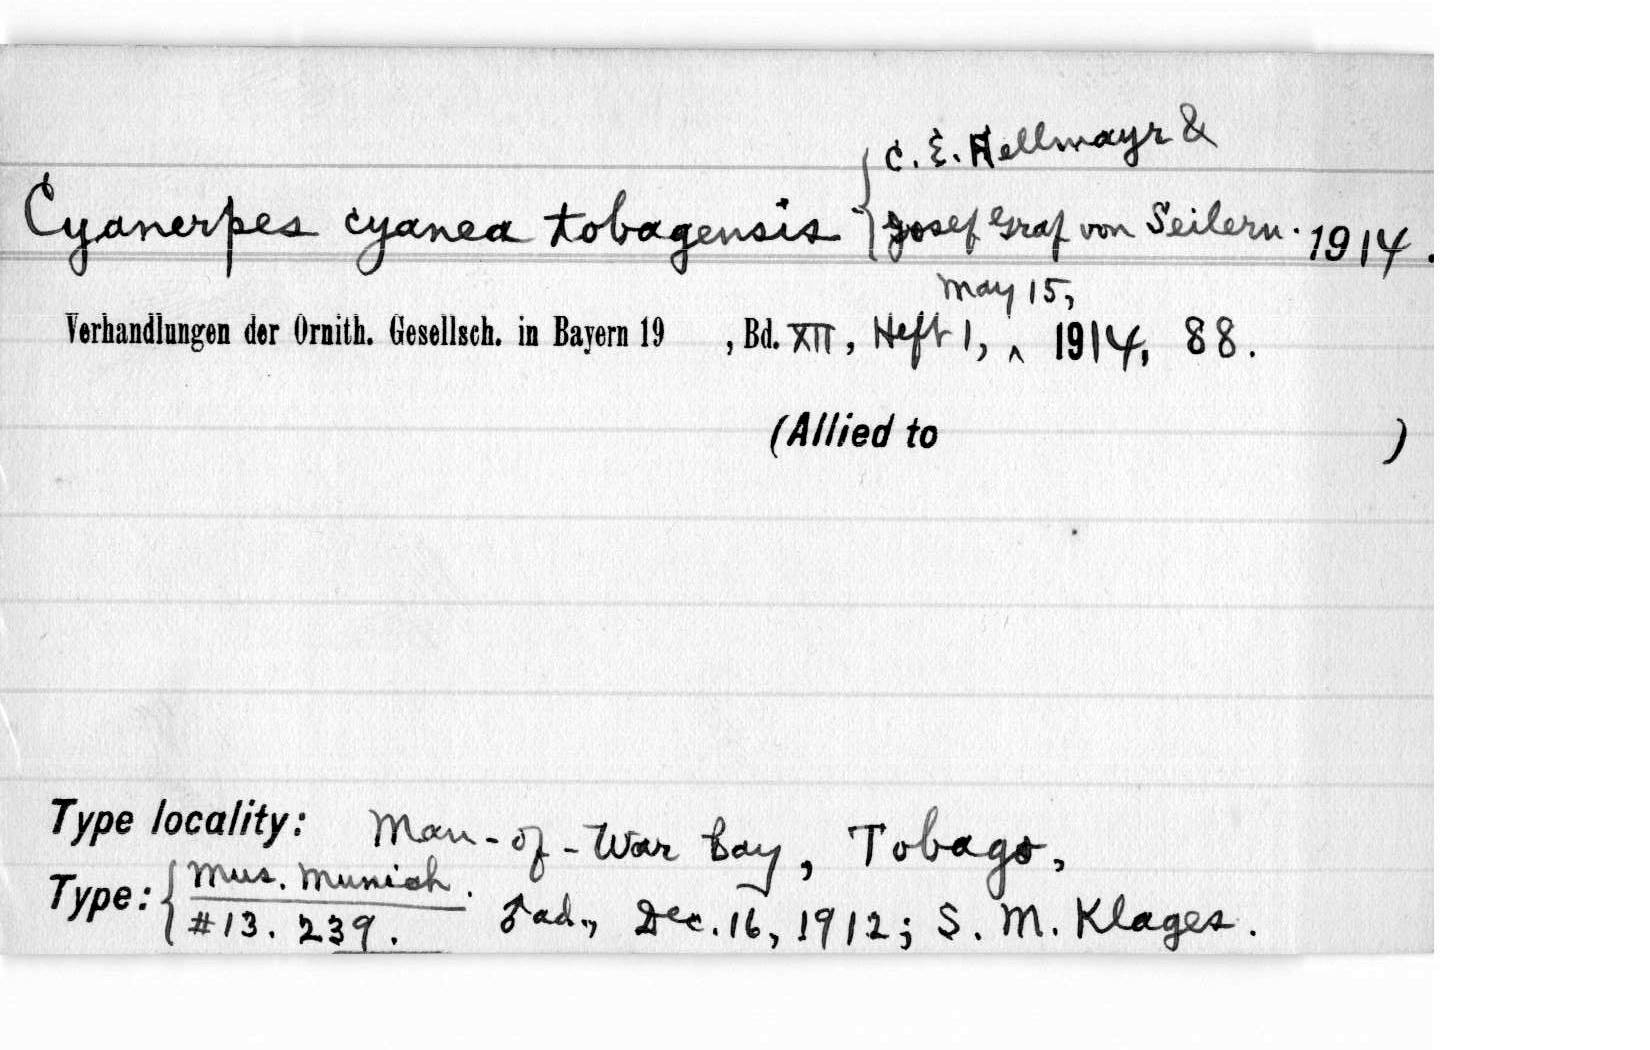 C. E. Hellmayr &
Cyanerpes cyanea tobagensis { Josef Graf von Seilern. 1914.
May 15,
Verhandlungen der Ornith. Gesellsch. in Bayern 19 , Bd. XII, Heft 1, ^ 1914, 88.
(Allied to )
Type locality: Man-of-War bay, Tobago,
Type: { Mus. Munich.
#13. 239. ♂ ad., Dec. 16, 1912; S. M. Klages.